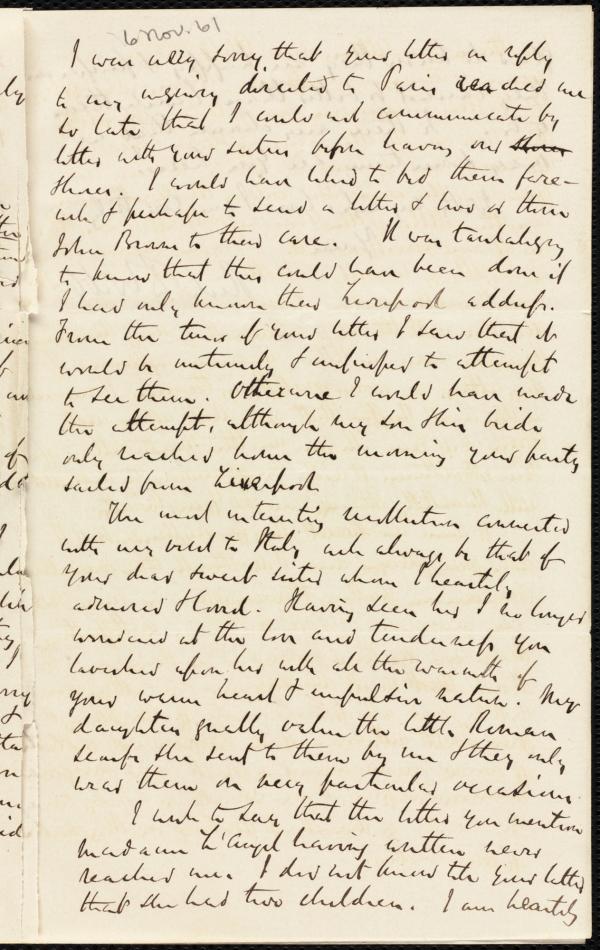 6 Nov. 61
I was very sorry, that your letter in reply
to my inquiry directed to Paris reached me
so late that I could not communicate by
letter with your sisters before leaving our
shores. I would have liked to bid them fare-
well & perhaps to send a letter & two or three
John Browns to their care. It was tantalizing
to know that this could have been done if
I had only known their Liverpool address.
From the tenor of your letter I saw that it
would be untimely & unfitting to attempt
to see them. Otherwise I would have made
the attempt, although my son & his bride
only reached home the morning your party
sailed from Liverpool
The most interesting recollection connected
with my visit to Italy will always be that of
your dear sweet sister whom I heartily
admired & loved. Having seen her I no longer
wondered at the love and tenderness you
lavished upon her with all the warmth of
your warm heart & impulsive nature. My
daughters greatly value the little Roman
scarfs she sent to them by me & they only
wear them on very particular occasions.
I wish to say that the letter you mention
Madame L'Angel having written never
reached me. I did not know till your letter
that she had two children. I am heartily